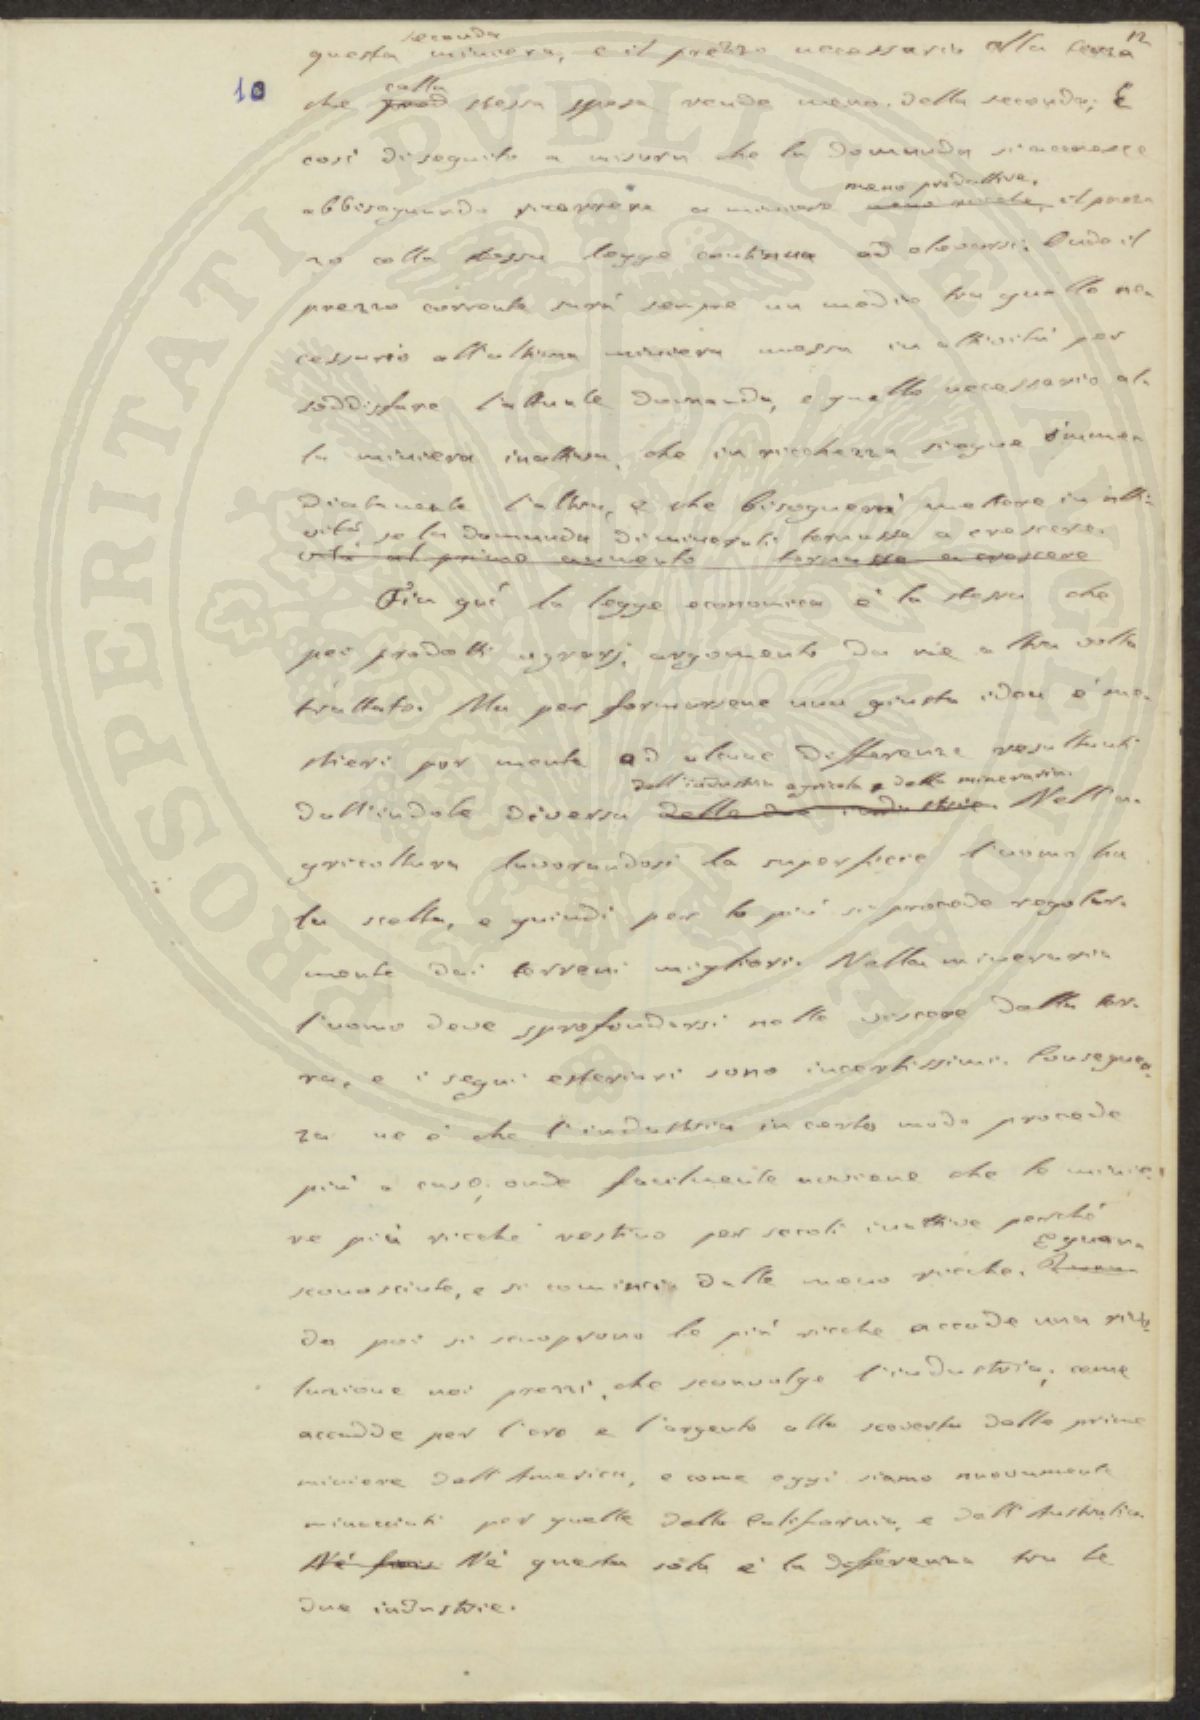 12
10
seconda
questa miniera, e il prezzo necessario alla terza
colla
che prod stessa spesa rende meno della seconda; E
così di seguito a misura che la domanda si accresce
meno produttive,
abbisognando ricorrere a miniere meno ricche, il prez-
zo colla stessa legge continua ad elevarsi. Onde il
prezzo corrente sarà sempre un medio tra quello ne-
cessario all'ultima miniera messa in attività per
soddisfare l'attuale domanda, e quello necessario al-
la miniera inattiva, che in ricchezza siegue imme-
diatamente l'altra, e che bisognerà mettere in atti-
vità, se la domanda di minerali tornasse a crescere.
vità al primo aumento tornasse a crescere
Fin quì la legge economica è la stessa che
pei prodotti agrarj, argomento da me altra volta
trattato. Ma per formarsene una giusta idea è me-
stieri por mente ad alcune differenze resultanti
dell'industria agricola e della mineraria.
dall'indole diversa delle due industrie. Nell'a-
gricoltura lavorandosi la superficie l'uomo ha
la scelta, e quindi per lo più si procede regolar-
mente dai terreni migliori. Nella mineraria
l'uomo deve sprofondarsi nelle viscere della ter-
ra, e i segni esteriori sono incertissimi. Conseguen-
za ne è che l'industria in certo modo procede
più a caso; onde facilmente avviene che le minie-
re più ricche restino per secoli inattive perchè
E quan-
sconosciute, e si comincia dalle meno ricche. Quan-
do poi si scuoprono le più ricche accade una rivo-
luzione nei prezzi, che sconvolge l'industria; come
accadde per l'oro e l'argento alla scoverta delle prime
miniere dell'America, e come oggi siamo nuovamente
minacciati per quelle della California, e dell'Australia
Nè fra Nè questa sola è la differenza tra le
due industrie.
PROSPERITATI PVBLICAE AVGENDAE